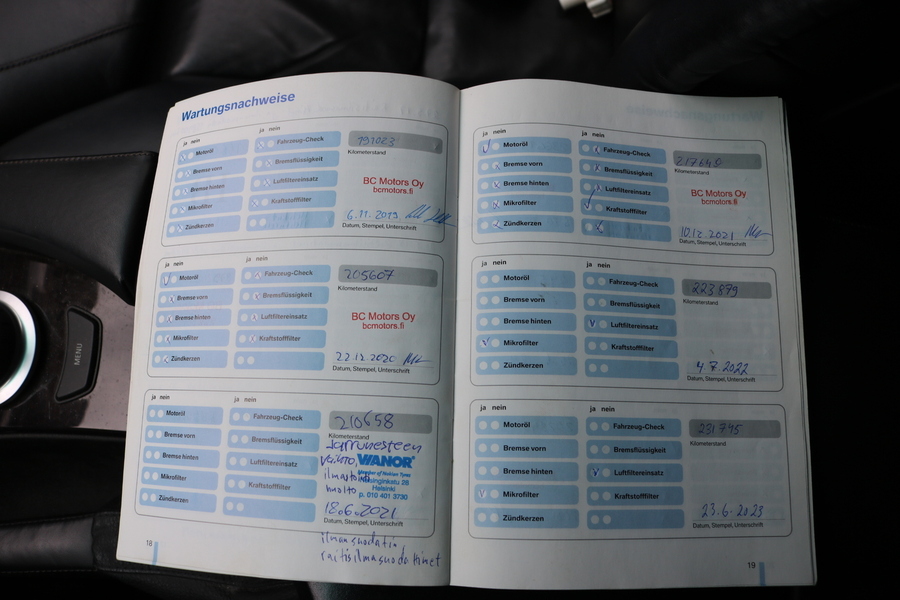 Wartungsnachweise
ja nein
ja nein
Motoröl
Fahrzeug-Check
191023
Bremse vorn
Bremsflüssigkeit
Kilometerstand
Bremse hinten
Luftfiltereinsatz
BC Motors Oy
bcmotors.fi
Mikrofilter
Kraftstofffilter
6.11.2019
Zündkerzen
Datum, Stempel, Unterschrift
ja nein
ja nein
Motoröl
Fahrzeug-Check
205607
Bremse vorn
Bremsflüssigkeit
Kilometerstand
Bremse hinten
Luftfiltereinsatz
BC Motors Oy
bcmotors.fi
Mikrofilter
Kraftstofffilter
Zündkerzen
22.12.2020
Datum, Stempel, Unterschrift
ja nein
ja nein
Motoröl
Fahrzeug-Check
210658
Bremse vorn
Bremsflüssigkeit
Kilometerstand
Jarrunesteen
Bremse hinten
Luftfiltereinsatz
vaihto
WANOR
Member of Nokian Tyres
ilmastoinn
Mikrofilter
Kraftstofffilter
huolto
Helsinginkatu 28
Helsinki
p. 010 401 3730
Zündkerzen
18.6.2021
Datum, Stempel, Unterschrift
ilmansuodatin
raitisilmasuodattimet
18
ja nein
ja nein
Motoröl
Fahrzeug-Check
217640
Bremse vorn
Bremsflüssigkeit
Kilometerstand
Bremse hinten
Luftfiltereinsatz
BC Motors Oy
bcmotors.fi
Mikrofilter
Kraftstofffilter
Zündkerzen
10.12.2021
Datum, Stempel, Unterschrift
ja nein
ja nein
Motoröl
Fahrzeug-Check
223879
Bremse vorn
Bremsflüssigkeit
Kilometerstand
Bremse hinten
Luftfiltereinsatz
Mikrofilter
Kraftstofffilter
Zündkerzen
4.7.2022
Datum, Stempel, Unterschrift
ja nein
ja nein
Motoröl
Fahrzeug-Check
231795
Bremse vorn
Bremsflüssigkeit
Kilometerstand
Bremse hinten
Luftfiltereinsatz
Mikrofilter
Kraftstofffilter
Zündkerzen
23.6-2023
Datum, Stempel, Unterschrift
19
MENU